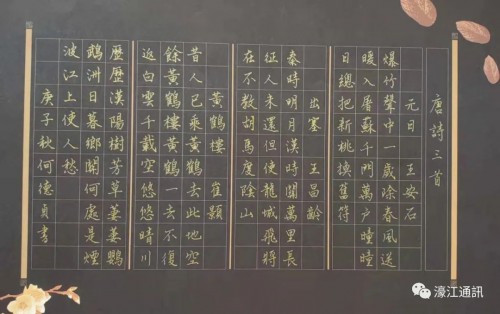 唐詩三首
元日 王安石
爆竹聲中一歲除春風送
暖入屠蘇千門萬戶曈曈
日總把新桃換舊符
出塞 王昌齡
秦時明月漢時關萬里長
征人未還但使龍城飛將
在不教胡馬度陰山
黃鶴樓 崔顥
昔人已乘黃鶴去此地空
餘黃鶴樓黃鶴一去不復
返白雲千載空悠悠晴川
歷歷漢陽樹芳草萋萋鸚
鵡洲日暮鄉關何處是煙
波江上使人愁
庚子秋何德貞書
濠江通訊